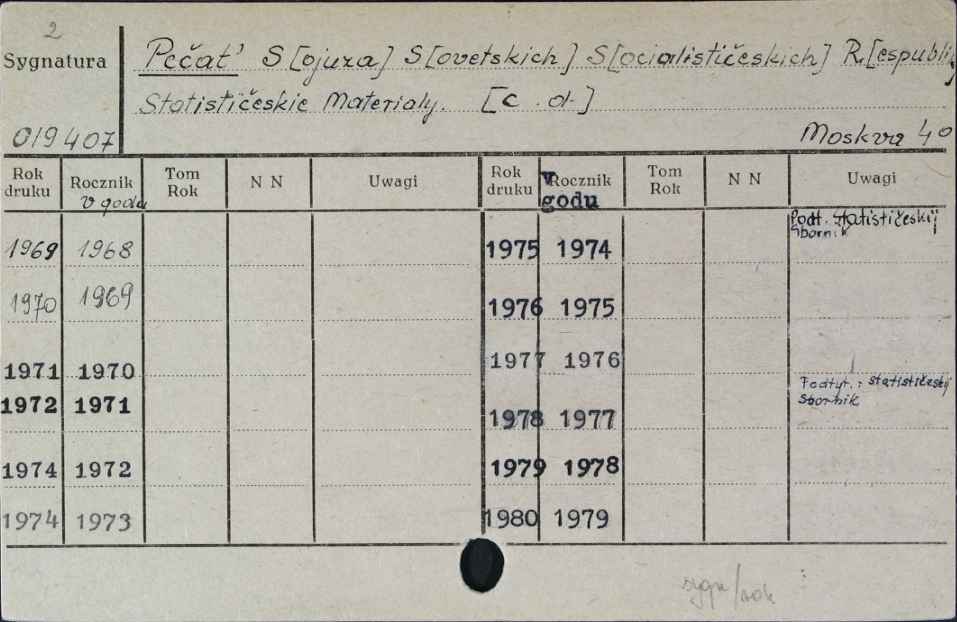 2
Sygnatura
Pečat' S[ojuza] S[ovetskich] S[ocialističeskich] R[espublik]
Statističeskie Materialy. [c. d.]
019407
Moskva 4°
Rok druku Rocznik Tom Rok N N Uwagi Rok druku Rocznik Tom Rok N N Uwagi
v godu v godu
1969 1968 1975 1974 Podt. Statističeskij
Sbornik
1970 1969 1976 1975
1971 1970 1977 1976
1972 1971 1978 1977 Podtyt.: statističeskij
sbornik
1974 1972 1979 1978
1974 1973 1980 1979
sygn/rok